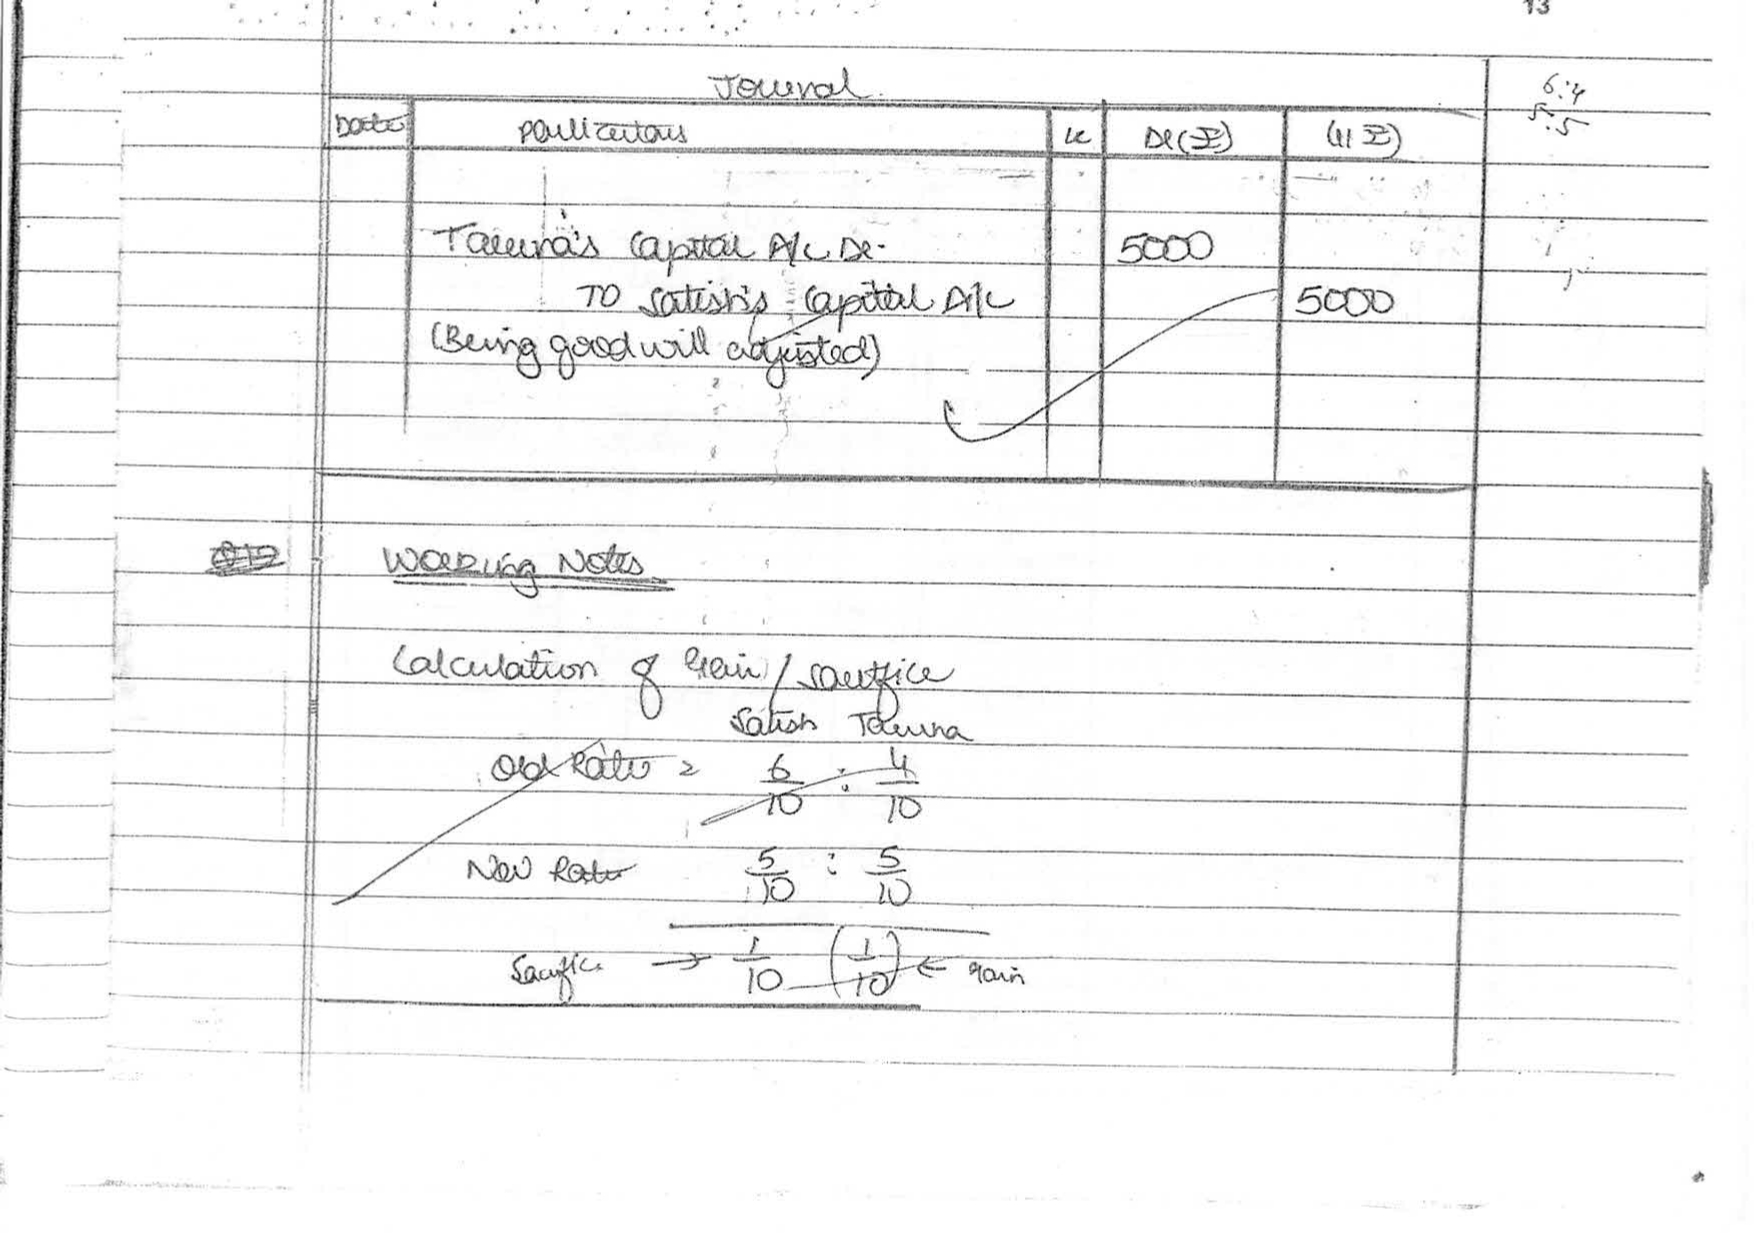 13
Journal
6:4
5:5
Date Particulars LF Dr(₹) Cr(₹)
Taruna's Capital A/c Dr. 5000
To Satish's Capital A/c 5000
(Being goodwill adjusted)
Working Notes
Calculation of Gain/Sacrifice
Satish Taruna
Old Ratio = 6/10 : 4/10
New Ratio 5/10 : 5/10
Sacrifice → 1/10 (1/10) ← Gain